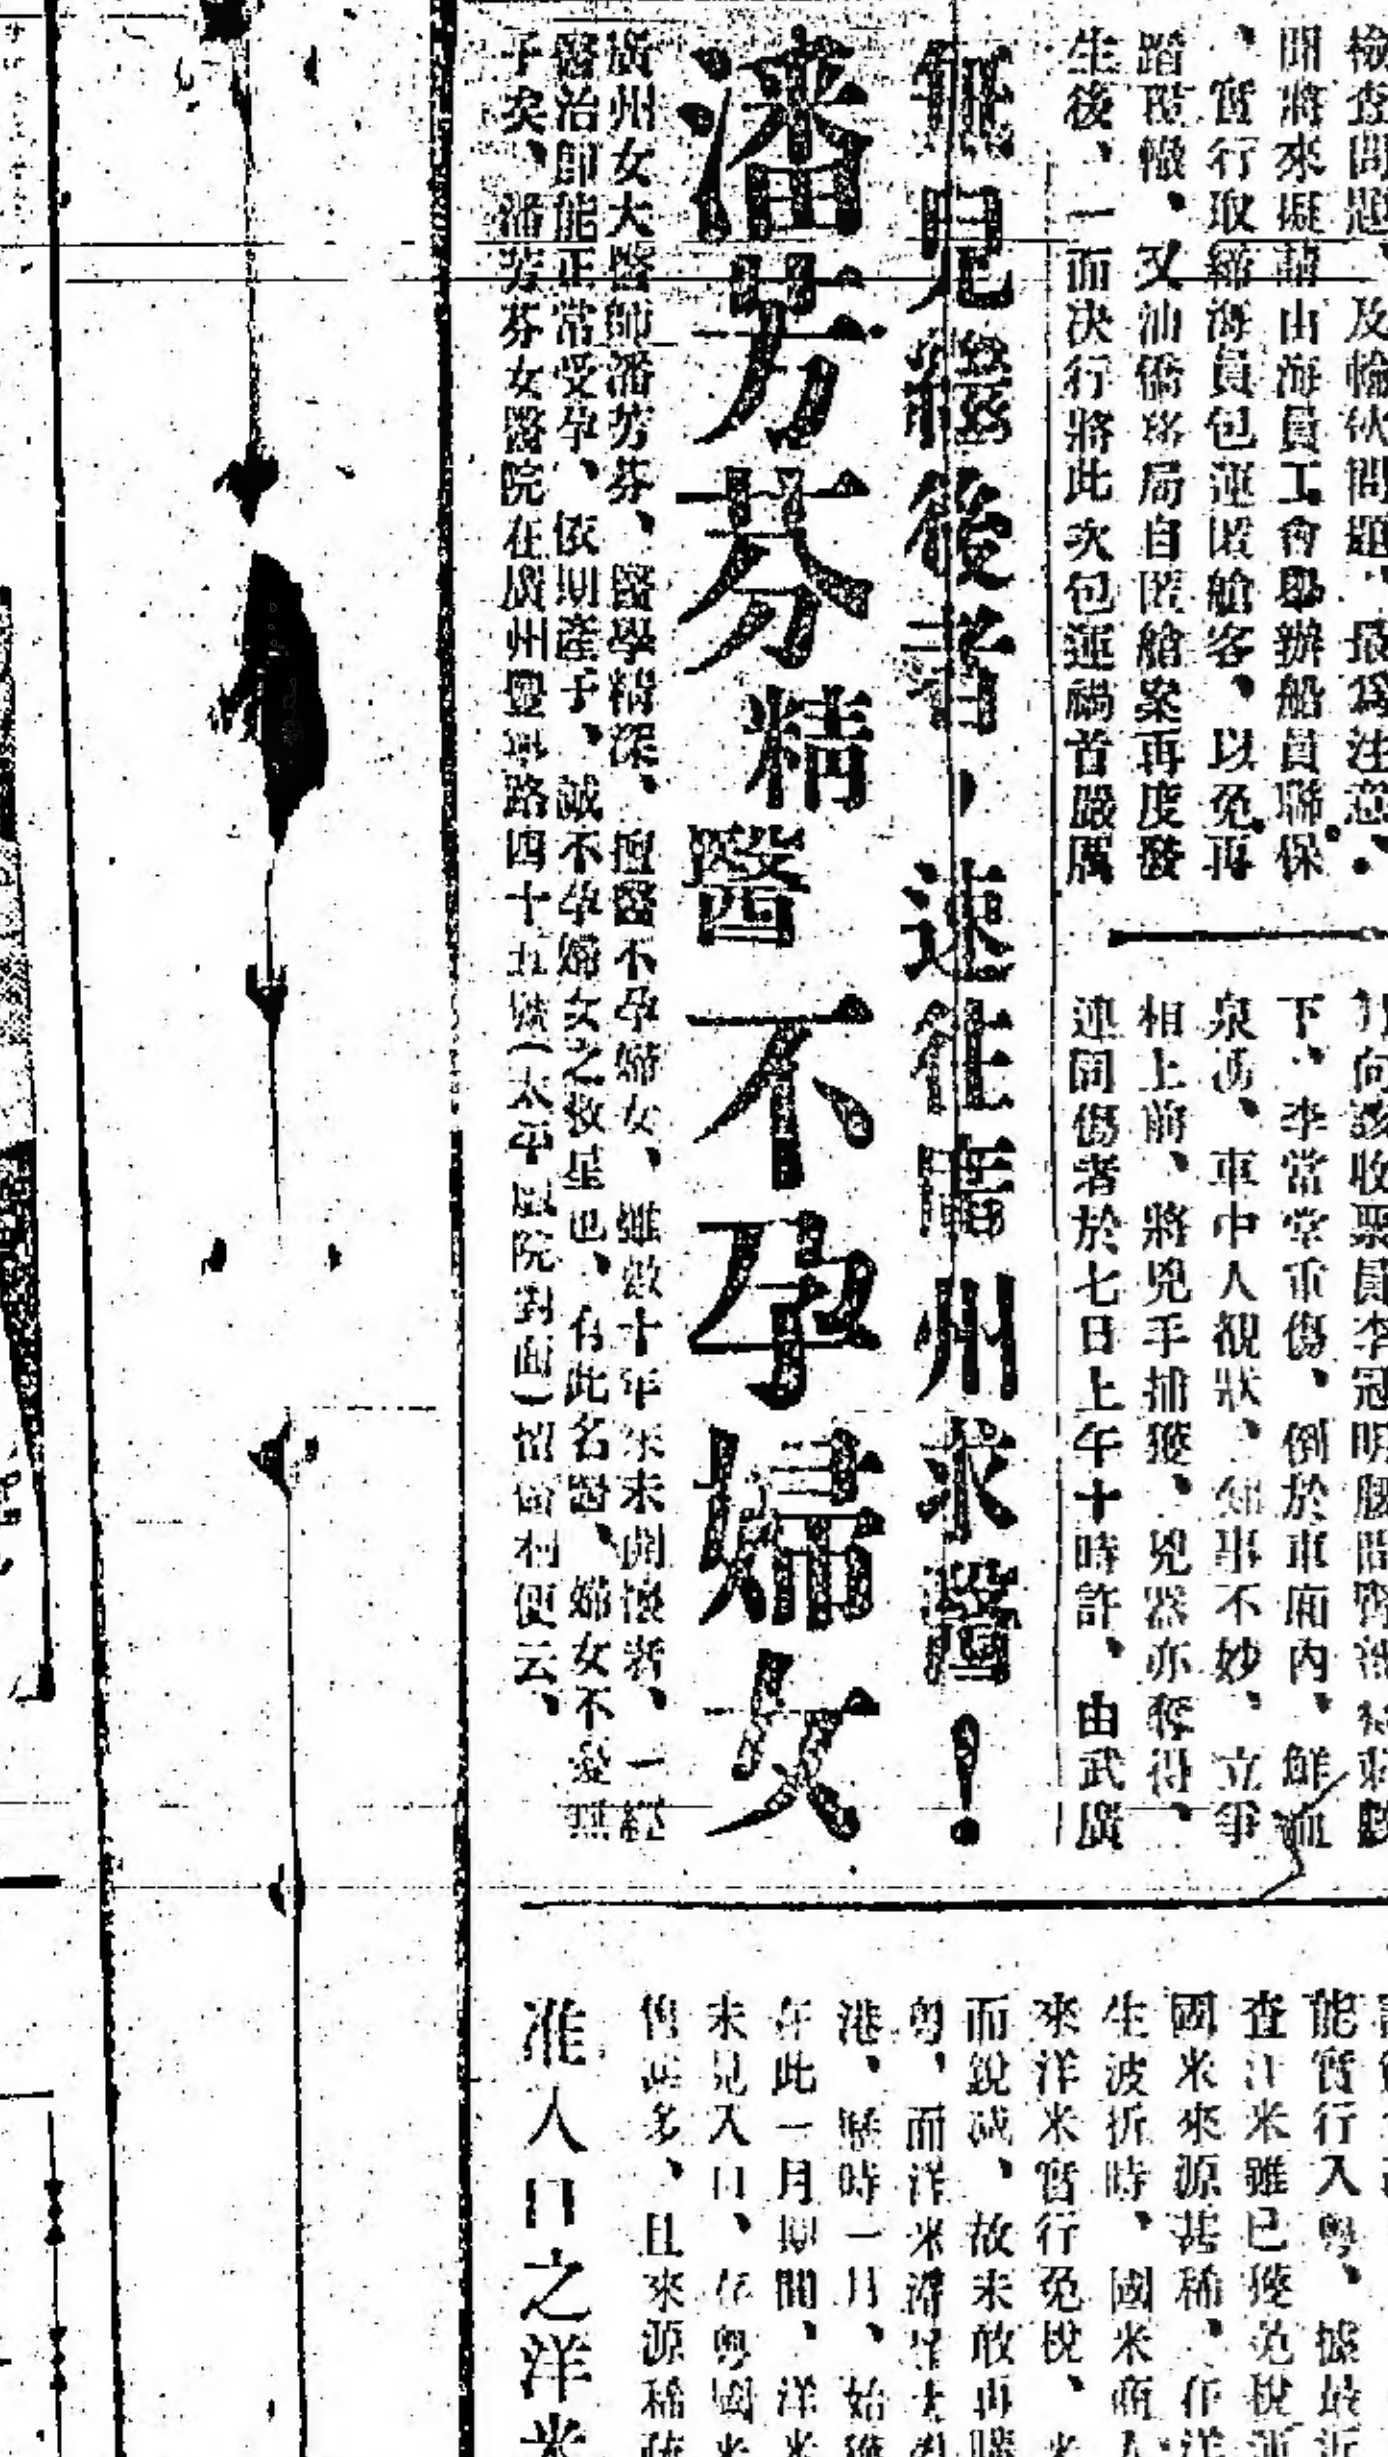 檢查問題、及輪伙問題、最爲注意、
聞將來擬請由海員工會舉辦船員聯保
、實行取締海員包運匿艙客、以免再
蹈覆轍、又汕僑務局自匿艙案再度發
生後、一面决行將此次包運禍首嚴厲
下、李常堂重傷、倒於車廂內、鮮血
泉湧、車中人覩狀、知事不妙、立爭
相上前、將兇手捕獲、兇器亦奪得、
連開傷者於七日上午十時許、由武廣
無兒繼後者，速往廣州求醫！
潘芳芬精醫不孕婦女
廣州女大醫師潘芳芬、醫學精深、擅醫不孕婦女、雖數十年來未開懷者、一經
醫治即能正常受孕、依期產子、誠不孕婦女之救星也、有此名醫、婦女不憂無
子矣、潘芳芬女醫院在廣州豐寧路四十五號（太平戲院對面）留醫利便云、
能實行入粵、據最近
查江米雖已獲免稅運
國米來源甚稀、作洋
生波折時、國米商人
來洋米實行免稅、米
而銳減、故未敢再購
粵、而洋米滯
港、歷時一月、始獲
在此一月期間、洋米
未見入口、在粵國米
售出多、且來源稀疏
准入口之洋米